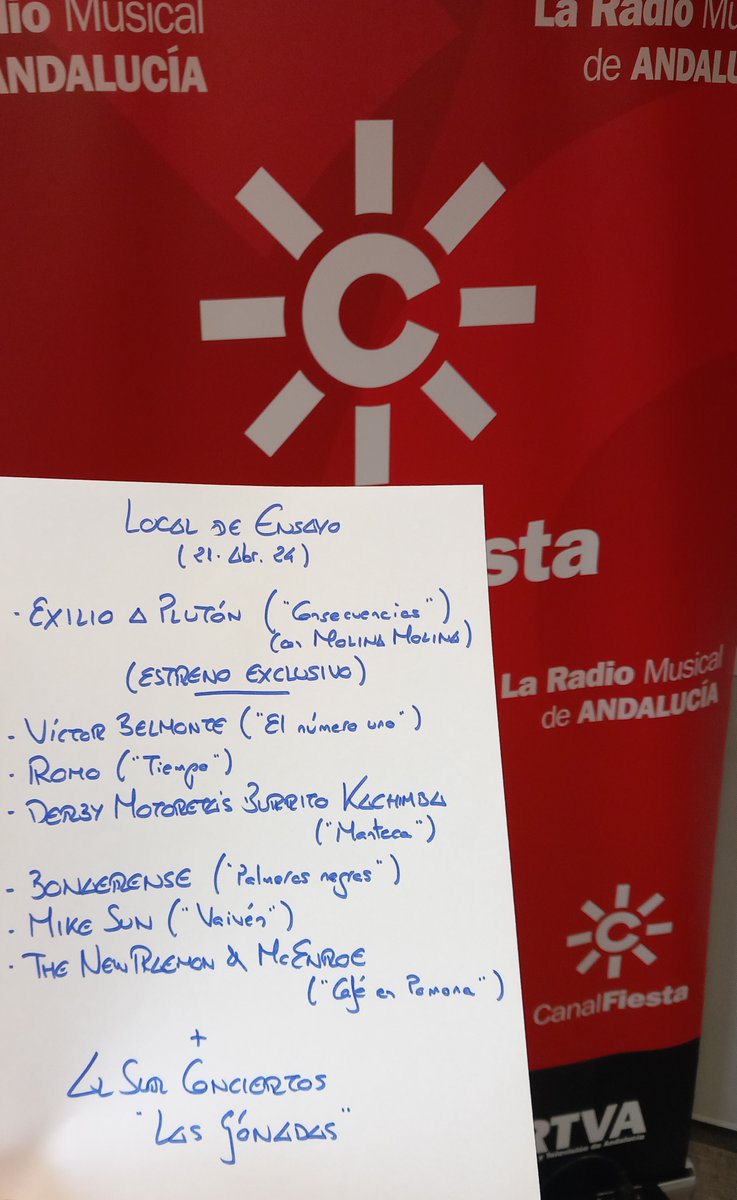 dio Musical
ANDALUCÍA
La Radio Mu
de ANDALU
sta
La Radio Musical
de ANDALUCÍA
CanalFiesta
RTVA
y Televisión de Andalucía
LOCAL DE ENSAYO
(21. Abr. 24)
· EXILIO A PLUTÓN ("Consecuencias")
(con MOLINA MOLINA)
(ESTRENO EXCLUSIVO)
· VÍCTOR BELMONTE ("El número uno")
· ROMO ("Tiempo")
· DERBY MOTORETA'S BURRITO KACHIMBA
("Manteca")
· BONGERENSE ("Palmeras negras")
· MIKE SUN ("Vaivén")
· THE NEW RAEMON & MCENROE
("Café en Pomona")
+
AL SUR CONCIERTOS
"LAS GÓNADAS"